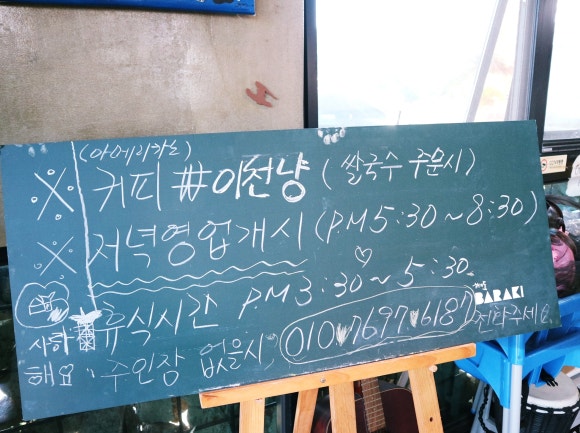 (아메리카노)
※ 커피 #이천냥 (쌀국수 주문시)
※ 저녁영업개시 (P.M 5:30~8:30)
휴식시간 P.M 3:30~5:30
BARAKI
사랑
해요
주인장 없을시 010 7697 6187 전화주세요